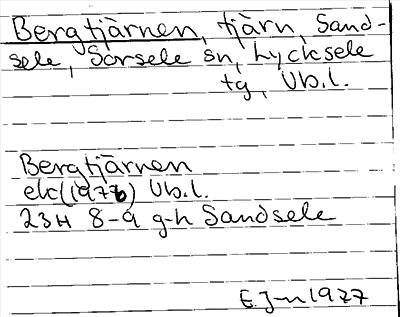 Bergtjärnen, tjärn, Sand-
sele, Sorsele sn, Lycksele
tg, Vb.l.
Bergtjärnen
ek(1976) Vb.l.
23H 8-9 g-h Sandsele
E.J-n 1977